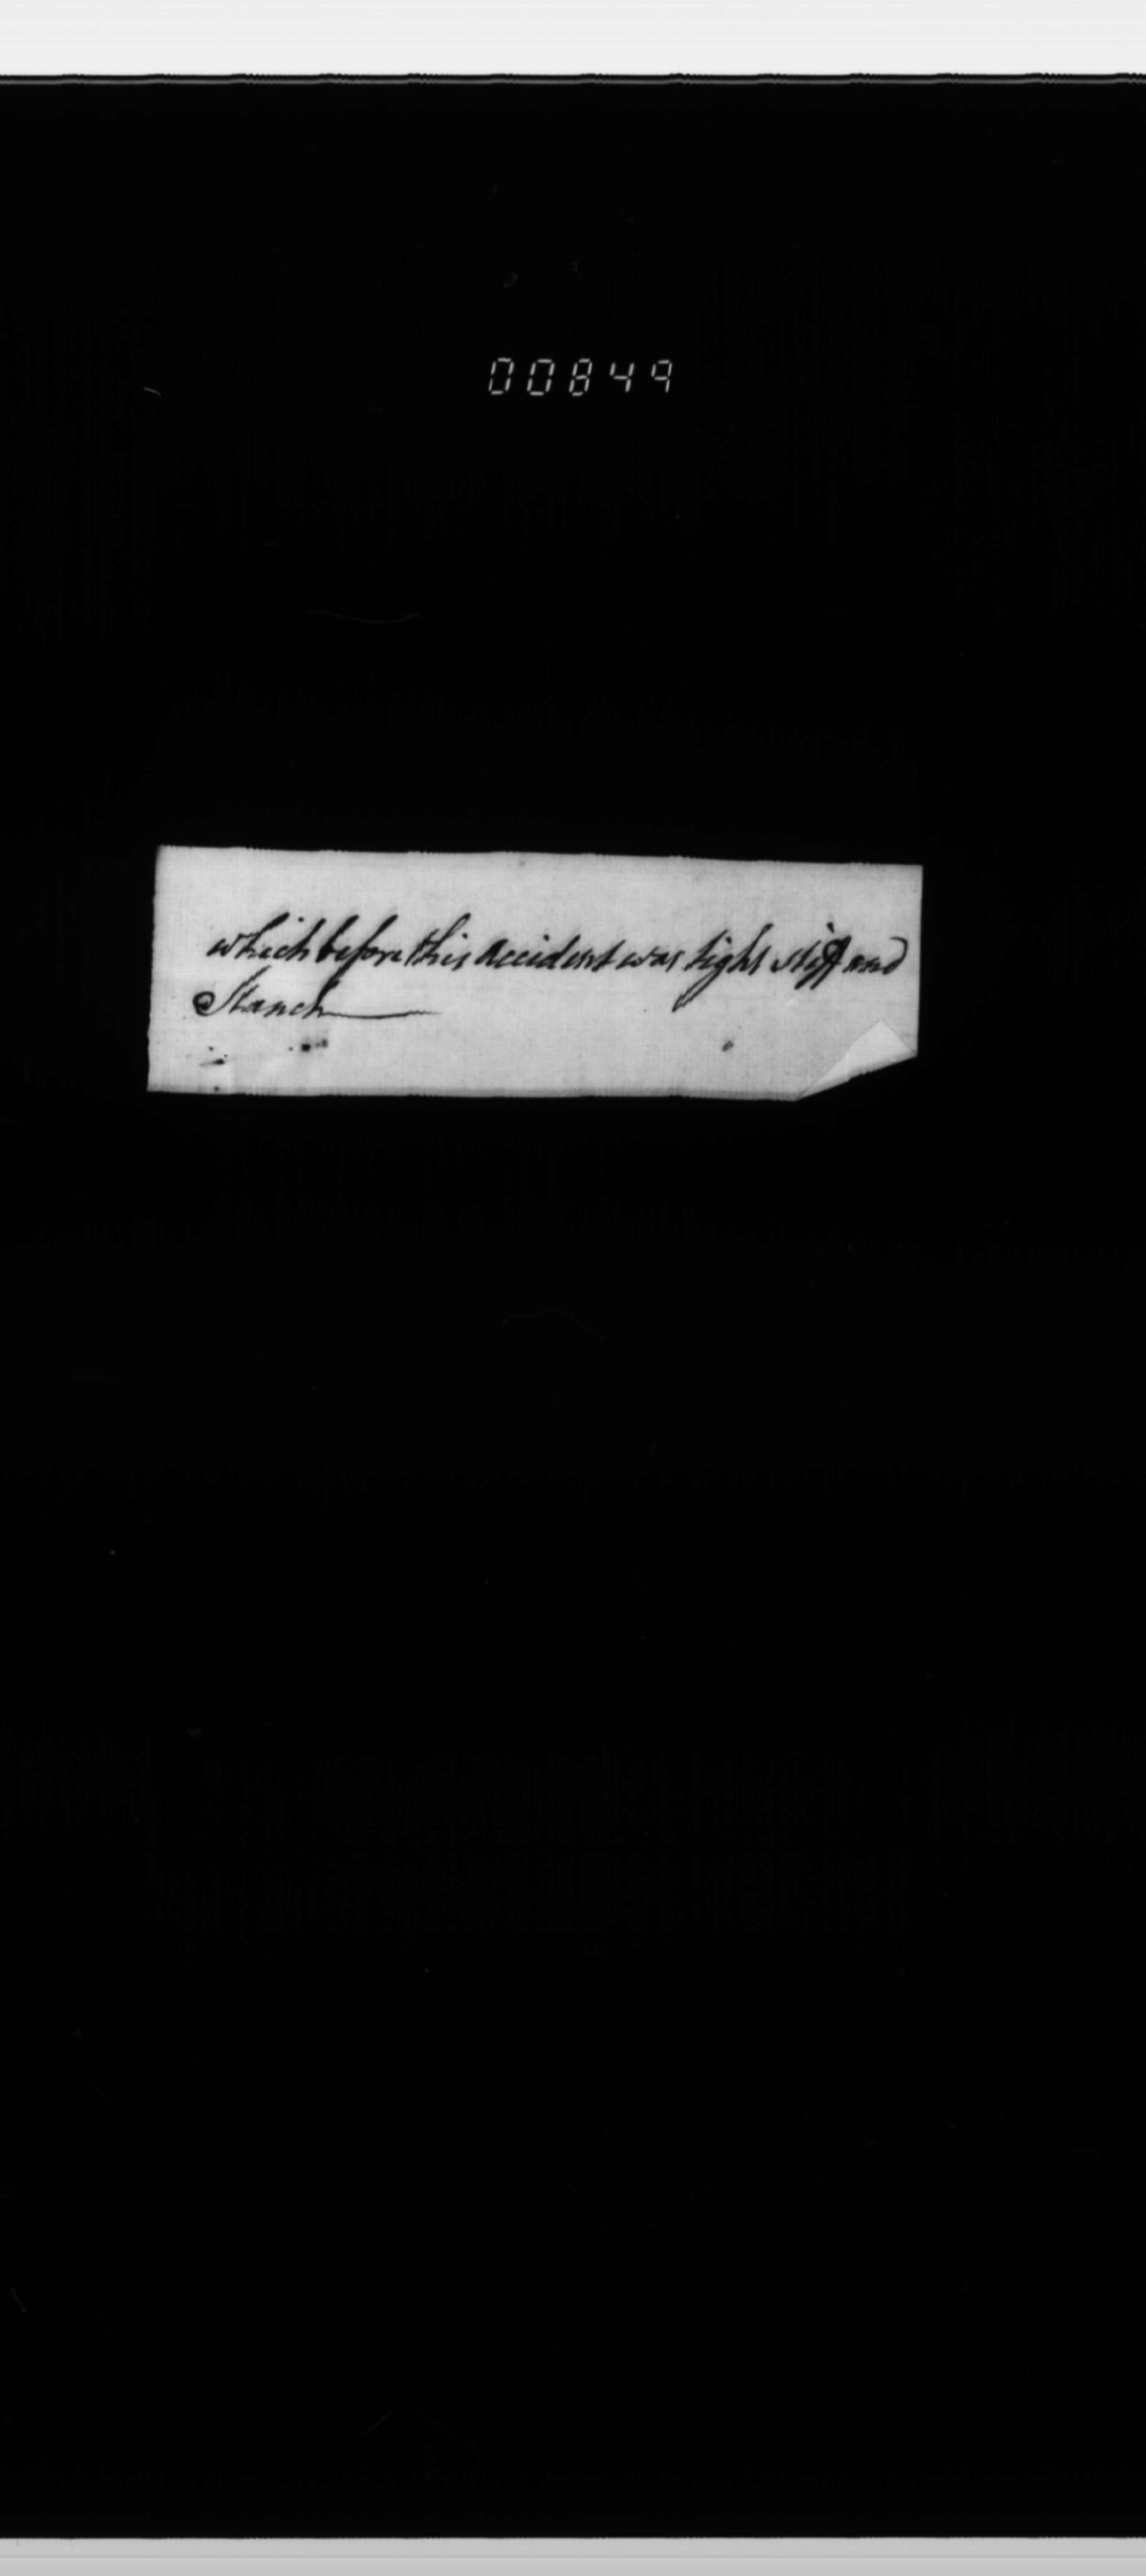 00849
which before this accident was tight stiff and
Stanch